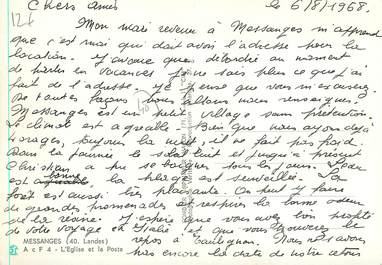 12f
Chers amis
le 6/8/1968.
Mon mari revenu à Messanges m'apprend
que c'est moi qui dait avoir l'adresse pour la
location. J'avoue que débordée au moment
de partir en vacances je ne sais plus ce que j'ai
fait de l'adresse. Je pense que vous m'excuserez.
De toutes façons nous allons nous renseigner.
Messanges est un petit village sans prétention.
Le climat est agréable. Bien que nous ayons déjà
orages, toujours la nuit, il ne fait pas froid.
Dans la journée le soleil luit et jusqu'à présent
Christian a pu se baigner tous les jours.
est bonne, la plage est merveilleuse. La
forêt est aussi très plaisante. On peut y faire
de grandes promenades et respirer la bonne odeur
de la résine. J'espère que vous avez bien profité
de votre voyage en Italie et que vous trouvez le
MESSANGES (40. Landes)
A c F 4 - L'Eglise et la Poste
repos à Taulignan. Nous ne savons
pas encore la date de notre retour